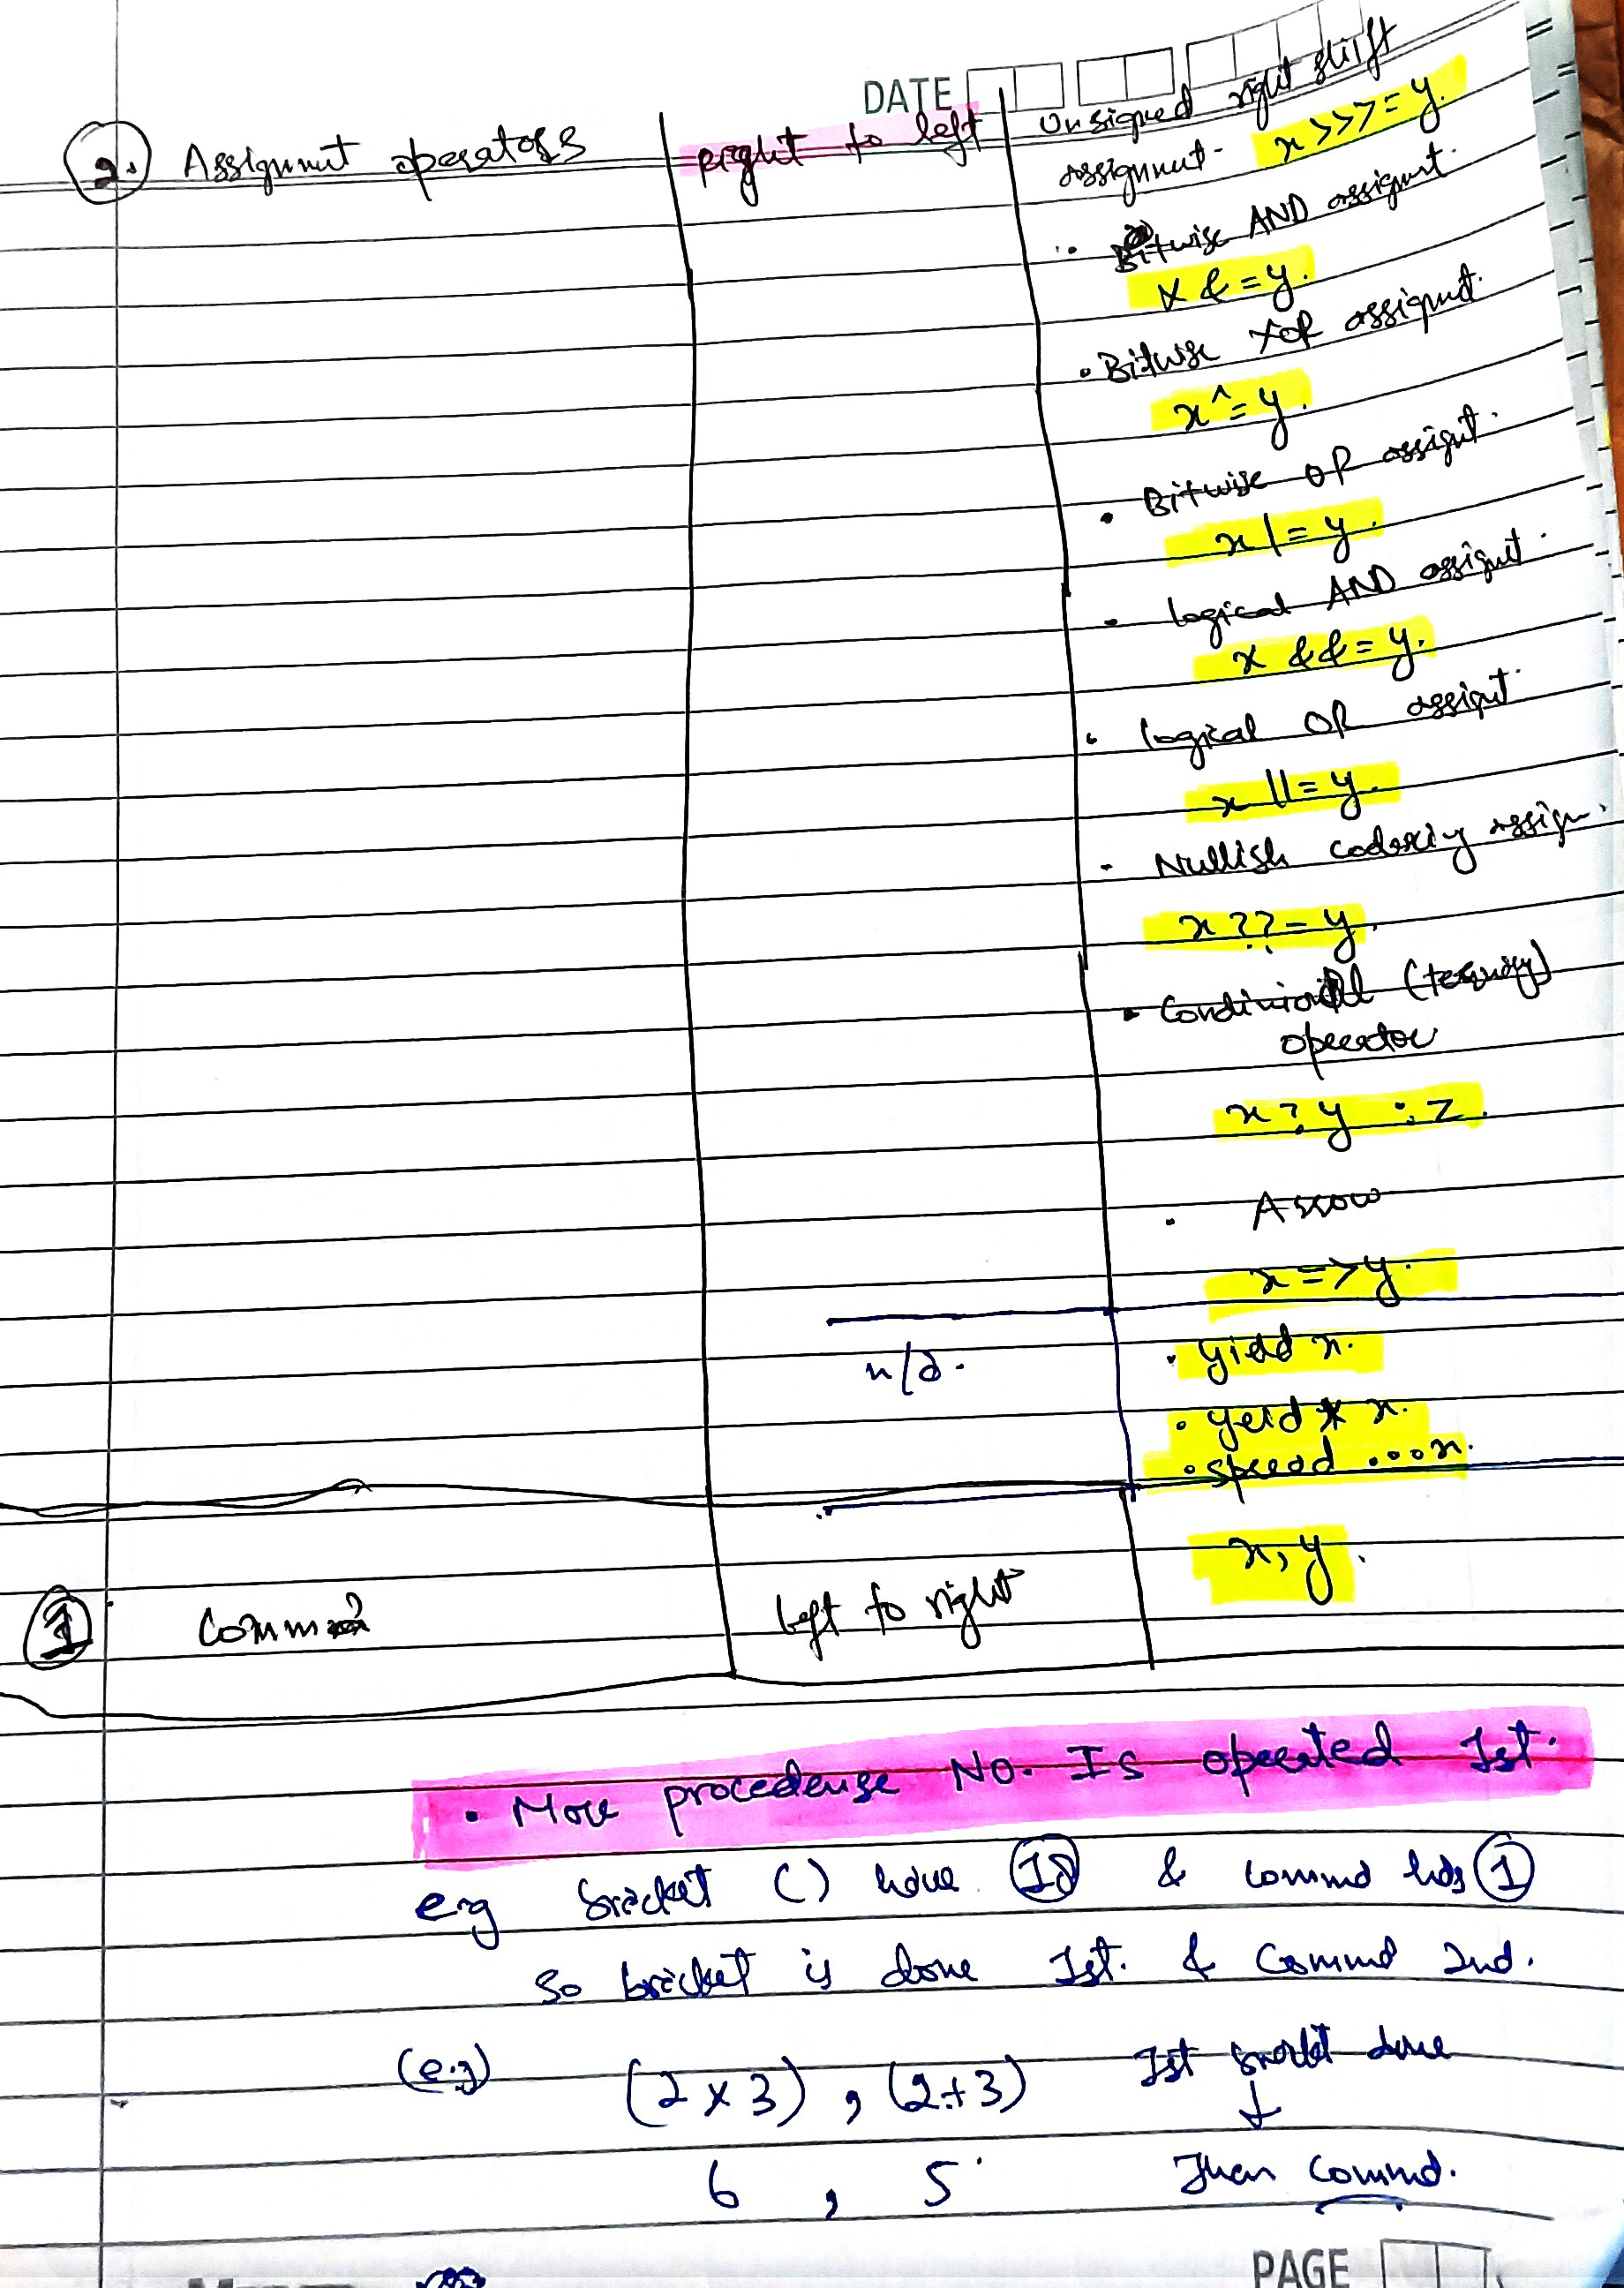 DATE
2. Assignmut operators
right to left
Unsigned right shift
assignmut - x >>>= y.
Bitwise AND assigmt.
x &= y.
• Bitwise XOR assigmt.
x ^= y.
• Bitwise OR assigmt.
x |= y.
• logical AND assigmt.
x &&= y.
• logical OR assigmt.
x ||= y.
• Nullish assign.
x ??= y.
• (ternary)
operator
x ? y : z.
• Arrow
x => y.
n/a.
• yield x.
• yeid * x.
• spread ...x.
1 Comma
left to right
x, y.
• More procedense NO. Is operated 1st.
eg bracket () have 18 & comma has 1
so bracket is done 1st. & Comma 2nd.
(e.g) (2 x 3) , (2+3) 1st done
↓
6 , 5 Then comma.
PAGE